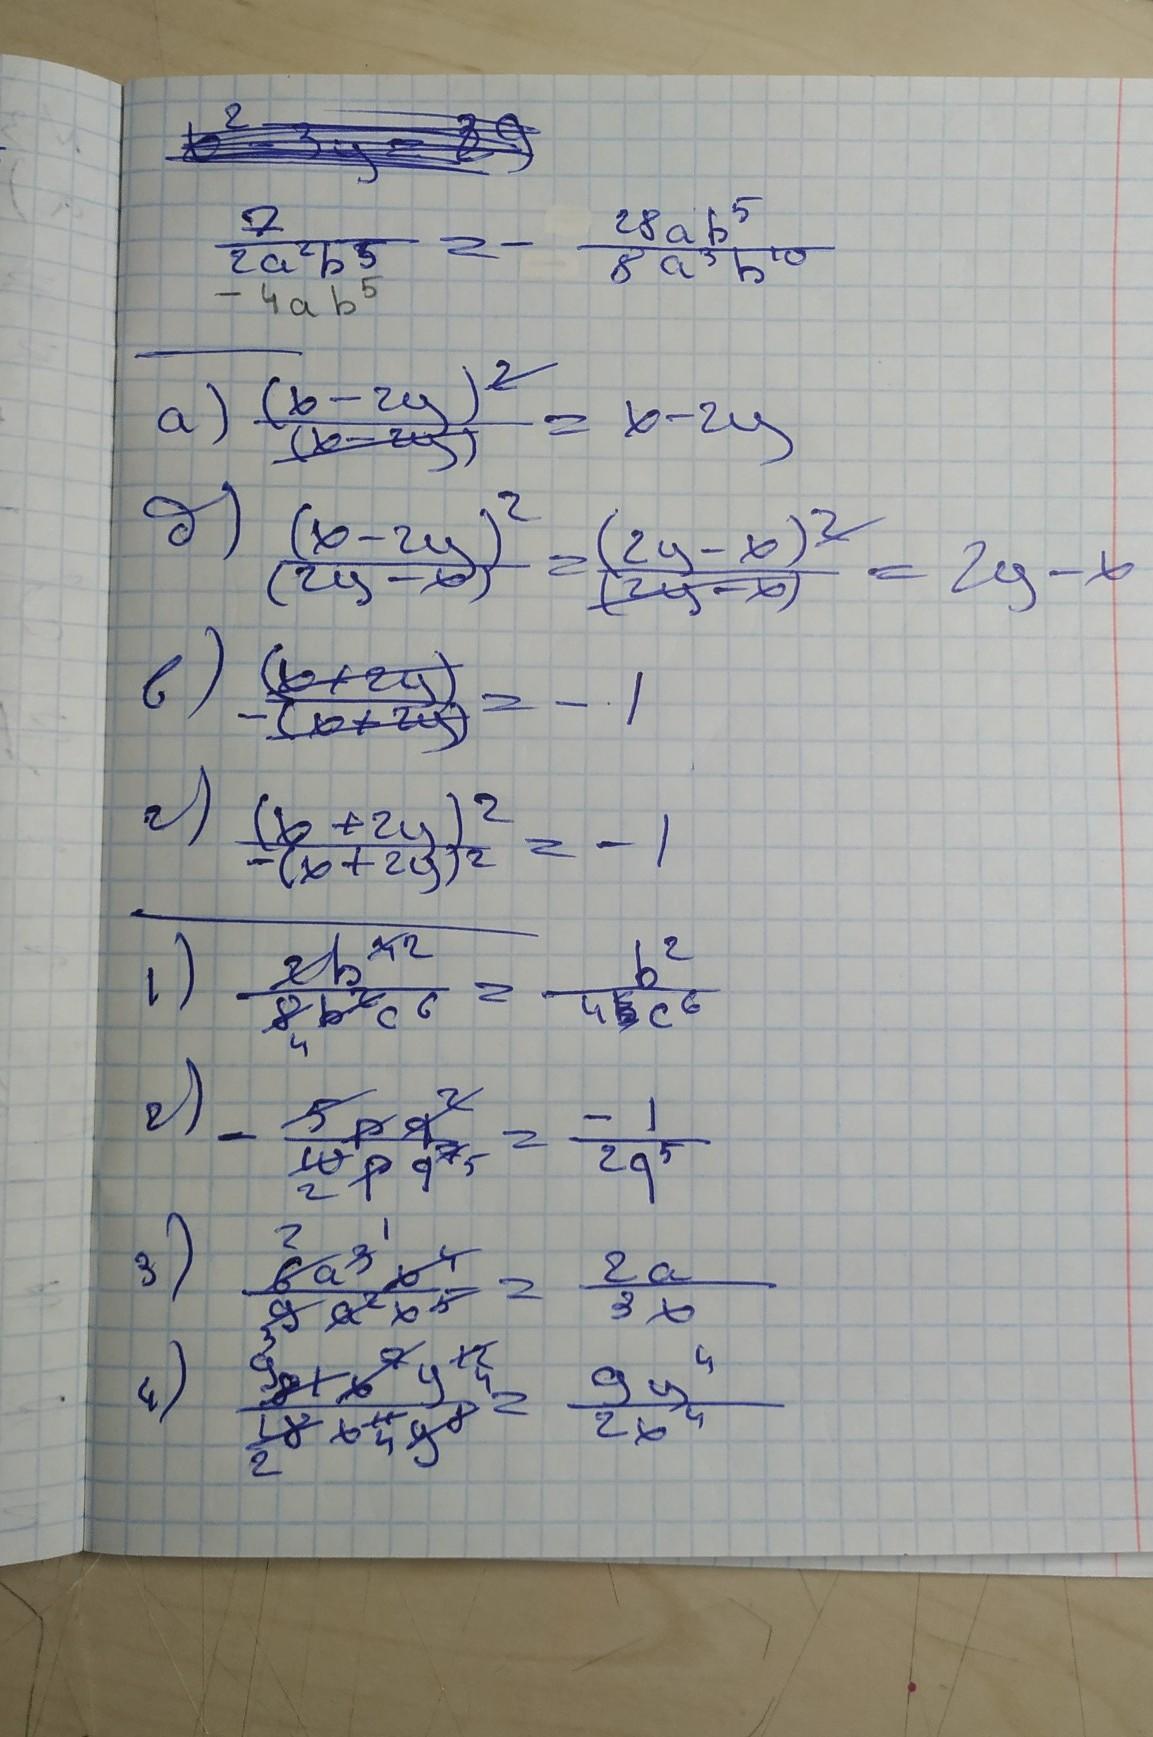 7/(2a²b⁵) = - 28ab⁵/(8a³b¹⁰)
-4ab⁵
а) (x-2y)²/(x-2y) = x-2y
б) (x-2y)²/(2y-x) = (2y-x)²/(2y-x) = 2y-x
в) (x+2y)/-(x+2y) = -1
г) (x+2y)²/-(x+2y)² = -1
1) 2b⁴ ²/(8b²c⁶) 4 = b²/(4c⁶)
2) - 5pq²/(10pq⁷) 2 5 = -1/(2q⁵)
3) 2 1 6a³x⁴/(9a²x⁵) 3 = 2a/(3x)
4) 9 81x⁷y¹² 4/(18x¹¹y⁸) 2 4 = 9y⁴/(2x⁴)